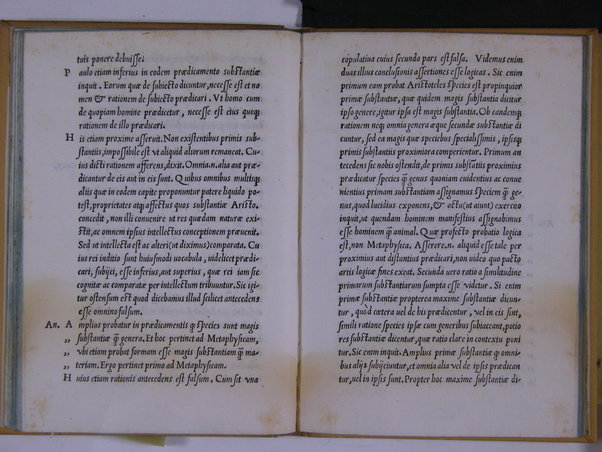 tuis ponere debuisse.
P aulo etiam inferius in eodem prædicamento substantiæ
inquit. Eorum quæ de subiecto dicuntur, necesse est et no
men & rationem de subiecto prædicari. Vt homo cum
de quopiam homine prædicetur, necesse est eius quoq;
rationem de illo prædicari.
H is etiam proxime asseruit. Non existentibus primis sub-
stantiis, impossibile est vt aliquid aliorum remaneat. Cu-
ius dicti rationem afferens, dixit. Omnia.n.alia aut præ-
dicantur de eis aut in eis sunt. Quibus omnibus multisq;
aliis quæ in eodem capite proponuntur patere liquido po-
test, proprietates atq; affectus quos substantiæ Aristo.
concedit, non illi conuenire ut res quædam naturæ exi-
stit, ac omnem ipsius intellectus conceptionem præuenit.
Sed ut intellecta est ac alteri (ut diximus) comparata. Cu
ius rei inditio sunt huiusmodi uocabula, uidelicet prædi-
cari, subijci, esse inferius, aut superius, quæ rei iam sic
cognitæ ac comparatæ per intellectum tribuuntur. Sic igi
tur ostensum est quod dicebamus illud scilicet antecedens
esse omnino falsum.
An. A mplius probatur in prædicamentis q; species sunt magis
„ substantiæ q̃ genera. Et hoc pertinet ad Metaphysicam,
„ vbi etiam probat formam esse magis substantiam q̃ ma-
„ teriam. Ergo pertinet primo ad Metaphysicam.
H uius etiam rationis antecedens est falsum. Cum sit vna
copulatiua cuius secunda pars est falsa. Videmus enim
duas illius conclusionis assertiones esse logicas. Sic enim
primum eam probat Aristoteles species est propinquior
primæ substantiæ, quæ quidem magis substantia dicitur
ipso genere, igitur ipsa est magis substantia. Ob eandemq;
rationem neq; omnia genera æque secundæ substantiæ di
cuntur, sed ea magis quæ speciebus specialissimis, ipsisq;
primis substantiis proximiora comperientur. Primum an
tecedens sic nobis ostendit, de primis substãtiis proximius
prædicatur species q̃ genus quoniam euidentius ac conue
nientius primum substantiam assignamus speciem q̃ ge-
nus, quod lucidius exponens, & actu (ut aiunt) exercito
inquit, ut quendam hominem manifestius assignabimus
esse hominem q̃ animal. Quæ profecto probatio logica
est, non Metaphysica. Asserere.n. aliquid esse tale per
proximius aut distantius prædicari, non uideo quo pacto
artis logicæ fines exeat. Secunda uero ratio a similitudine
primarum substantiarum sumpta esse videtur. Si enim
primæ substantiæ propterea maxime substantiæ dicun-
tur, quod cætera uel de bis prædicentur, vel in eis sint,
simili ratione species ipsæ cum generibus subiaceant, potio
res substantiæ dicentur, quæ ratio clare in contextu poni
tur. Sic enim inquit. Amplius primæ substantiæ q; omni-
bus alijs subijciuntur, et omnia alia vel de ipsis prædican
tur, uel in ipsis sunt. Propter hoc maxime substantiæ di-